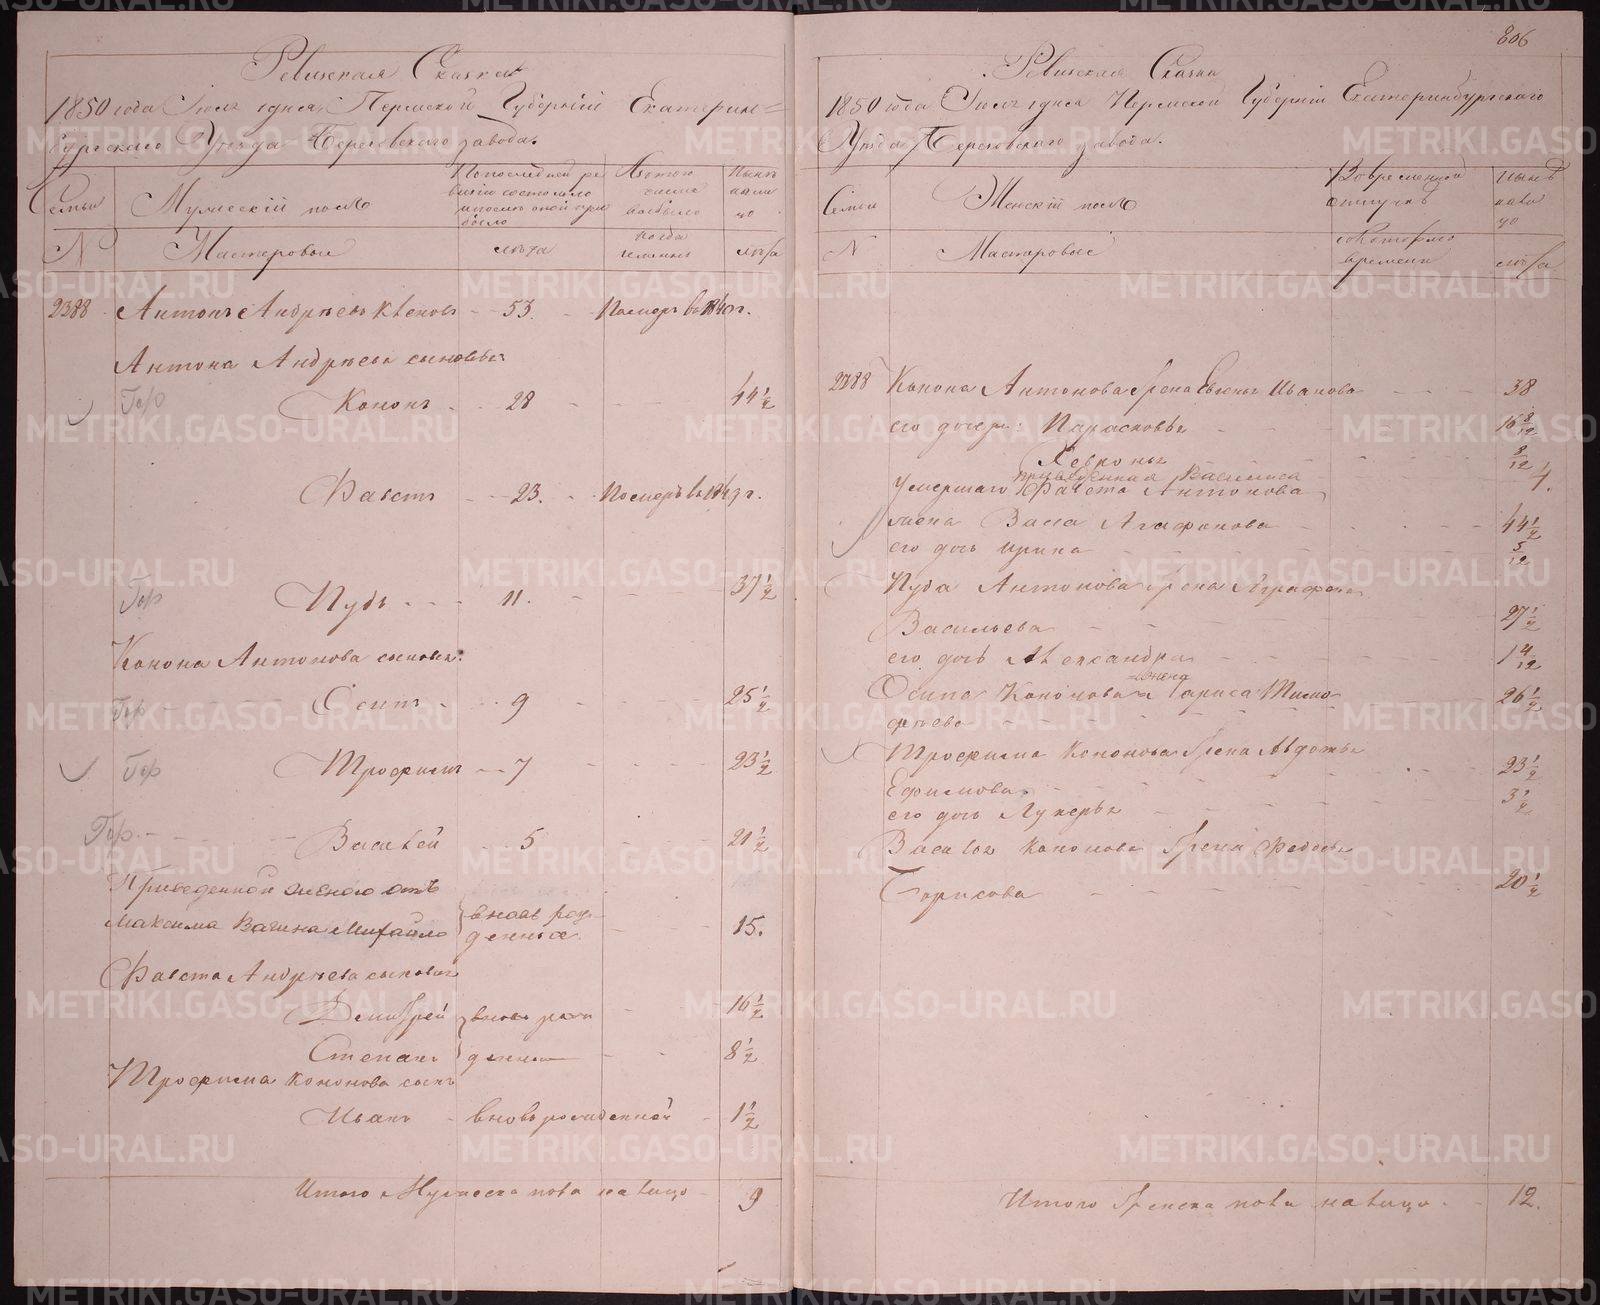 Ревизская Сказка
1850 года Іюля 1 дня Пермской Губерніи Екатерин-
бургскаго Уѣзда Березовскаго завода.
Семьи
Мужескій полъ
По последней ре
визіи состояло
и после оной при
было
Изъ того
числа
выбыло
Нынѣ
на ли
цо
№
Мастеровые
лѣта
когда
именно
лѣта
2388 Антонъ Андрѣевъ 53. Померъ въ г.
Антона Андрѣева сыновья:
Гор Кононъ 28 44 1/2
Фавстъ 23. Померъ въ г.
Гор Пудъ 11. 37 1/2
Конона Антонова сыновья:
Гор Осипъ 9 25 1/2
Гор Трофимъ 7 23 1/2
Гор. Василей 5 21 1/2
Приведенной женою отъ
Максима Вагина Михайло вновь рож-
денные. 15.
Фавста Андрѣева сыновья
Дмитрей вновь рож 16 1/2
Степанъ денные 8 1/2
Трофима Кононова сынъ
Иванъ вновь рожденной 1 1/2
Итого Мужеска пола на лицо 9
806
Ревизская Сказка
1850 года Іюля 1 дня Пермской Губерніи Екатеринбургскаго
Уѣзда Березовскаго завода.
Семьи
Женскій полъ
Во временной
отлучкѣ
Нынѣ
на ли
цо
№
Мастеровые
съ котораго
времени
лѣта
2388 Конона Антонова жена Иванова 38
его дочери: Парасковья 16 8/12
Хевронья 8/12
приведенная Василиса 4.
Умершаго Фавста Антонова
жена Васса Агафонова 44 1/2
его дочь Ирина 5/12
Пуда Антонова жена Аграфена
Васильева 27 1/2
его дочь Александра 1 4/12
Осипа Кононова жена Лариса Тимо- 26 1/2
фѣева
Трофима Кононова жена Авдотья
Ефимова 23 1/2
его дочь Лукерья 3 1/2
Василья Кононова жена Федосья
Борисова 20 1/2
Итого Женска пола на лицо 12.
METRIKI.GASO-URAL.RU